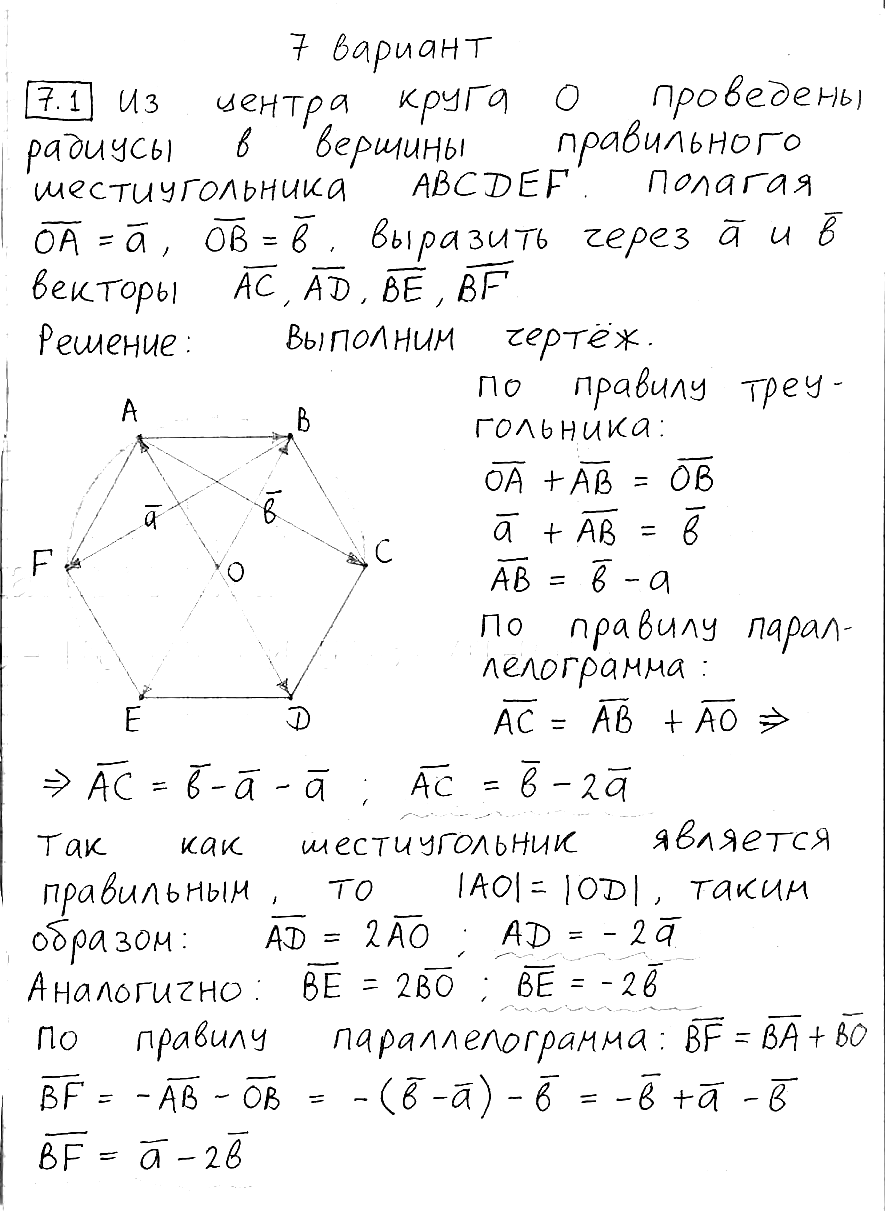 7 вариант
7.1 Из центра круга O проведены
радиусы в вершины правильного
шестиугольника ABCDEF. Полагая
O̅A̅ = a̅, O̅B̅ = b̅. выразить через a̅ и b̅
векторы A̅C̅, A̅D̅, B̅E̅, B̅F̅
Решение: Выполним чертёж.
По правилу треу-
гольника:
O̅A̅ + A̅B̅ = O̅B̅
a̅ + A̅B̅ = b̅
A̅B̅ = b̅ - a
По правилу парал-
лелограмма:
A̅C̅ = A̅B̅ + A̅O̅ ⇒
A
B
a̅
b̅
F
O
C
E
D
⇒ A̅C̅ = b̅ - a̅ - a̅ ; A̅C̅ = b̅ - 2a̅
Так как шестиугольник является
правильным, то |AO| = |OD|, таким
образом: A̅D̅ = 2A̅O̅ ; AD = -2a̅
Аналогично: B̅E̅ = 2B̅O̅ ; B̅E̅ = -2b̅
По правилу параллелограмма: B̅F̅ = B̅A̅ + B̅O̅
B̅F̅ = -A̅B̅ - O̅B̅ = -(b̅ - a̅) - b̅ = -b̅ + a̅ - b̅
B̅F̅ = a̅ - 2b̅